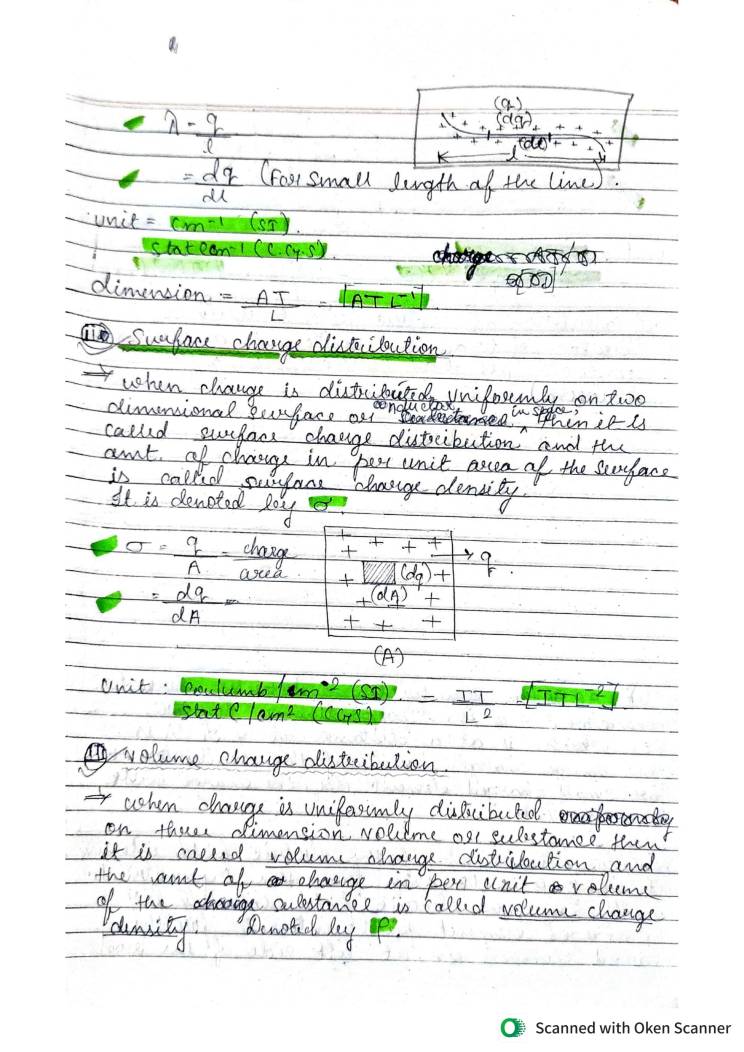 λ = q/l
(q)
(dq)
(dl)
l
= dq/dl (For small length of the line).
unit = Cm⁻¹ (SI).
stat Cm⁻¹ (C.G.S)
charge
dimension = AT/L = [ATL⁻¹]
(ii) Surface charge distribution
→ when charge is distributed uniformly on two
dimensional surface or conductor in space, then it is
called surface charge distribution and the
amt. of charge in per unit area of the surface
is called surface charge density.
It is denoted by σ.
σ = q/A = charge/area
= dq/dA =
q
(dq)
(dA)
(A)
Unit : Coulumb/m⁻² (SI) = IT/L² = [ITL⁻²]
stat C/cm² (CGS)
(III) Volume charge distribution.
→ when charge is uniformly distributed
on three dimension volume or substance then
it is called volume charge distribution and
the amt of charge in per unit volume
of the substance is called volume charge
density. Denoted by ρ.
Scanned with Oken Scanner